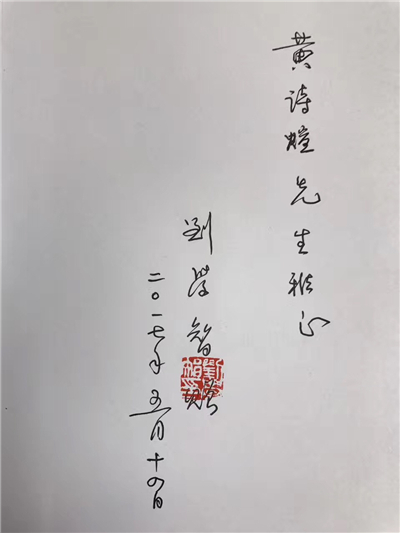 黄诗煊先生雅正
刘学智赠
二〇一七年五月十四日